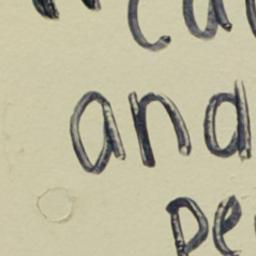 ca
and
pe